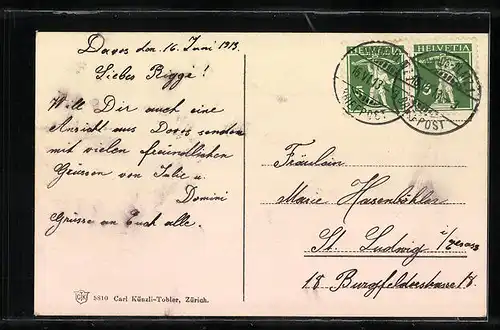 Davos den 16. Juni 1913.
Liebes Riggi!
Will Dir auch eine
Ansicht aus Davos senden
mit vielen freundlichen
Grüssen von Julie u.
Domini
Grüsse an Euch alle.
HELVETIA HELVETIA
5 5
BRIEFPOST BRIEFPOST
Fräulein
Marie Hasenböhler
St. Ludwig i/Elsass
18 Burgfelderstrasse 18.
5810 Carl Künzli-Tobler, Zürich.